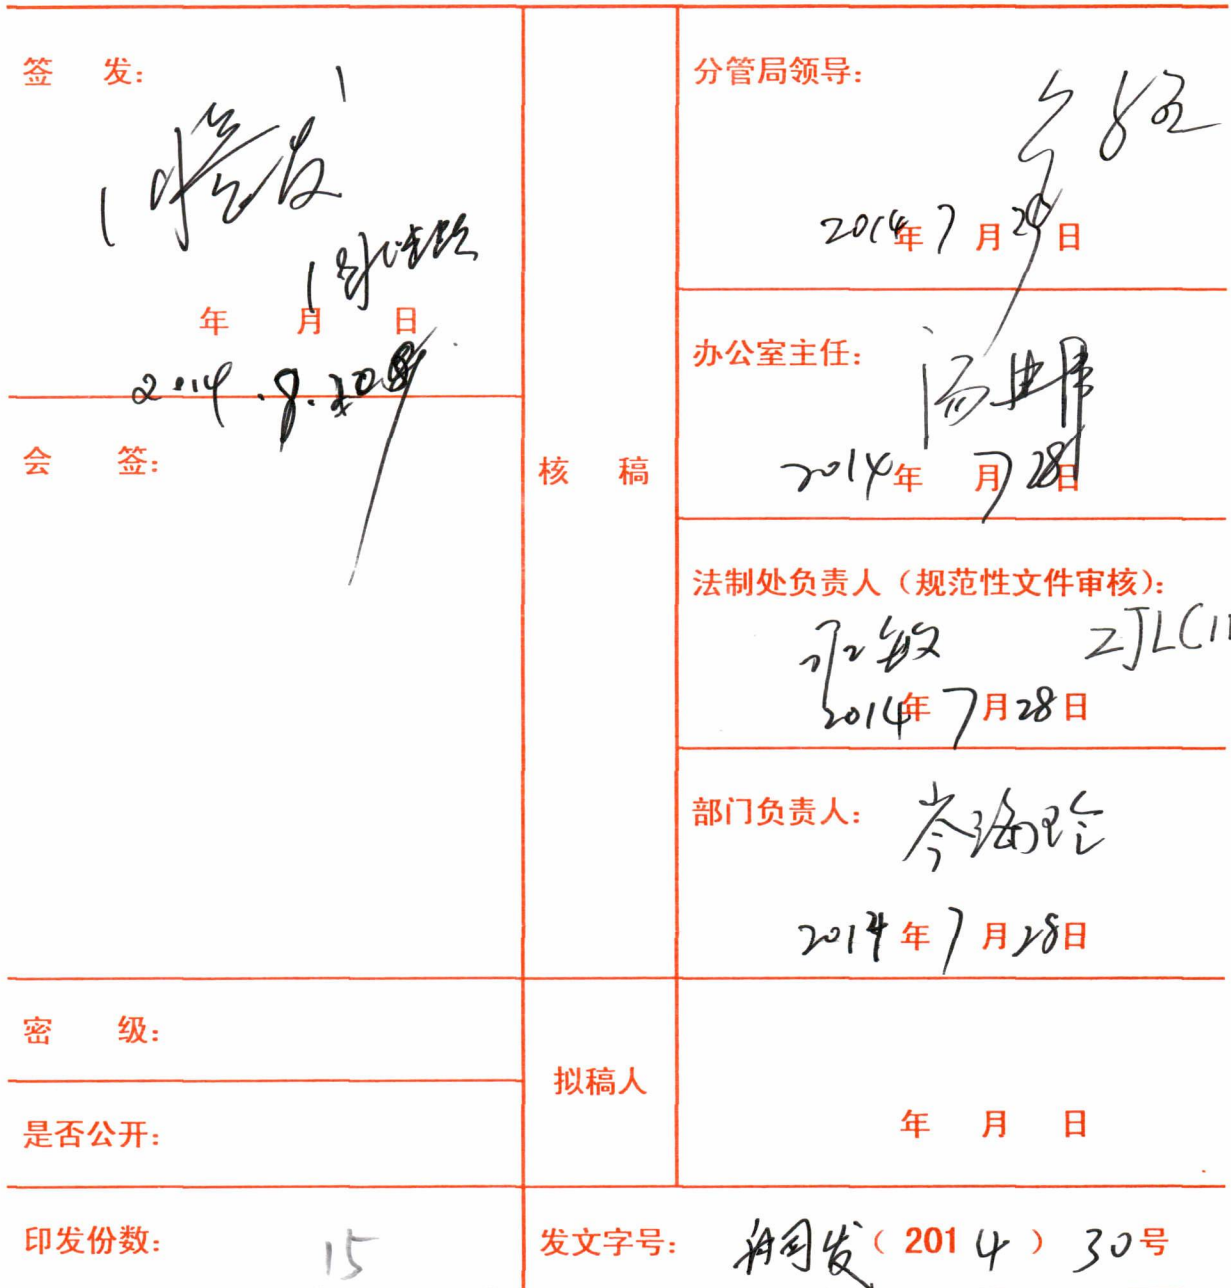 签 发:
签发
年 月 日
2014.8.
会 签:
核 稿
分管局领导:
2014年7月29日
办公室主任:
2014年7月28日
法制处负责人（规范性文件审核）:
敏 ZJLC11
2014年7月28日
部门负责人:
岑海玲
2014年7月28日
密 级:
是否公开:
拟稿人
年 月 日
印发份数: 15
发文字号: 发（2014）30号